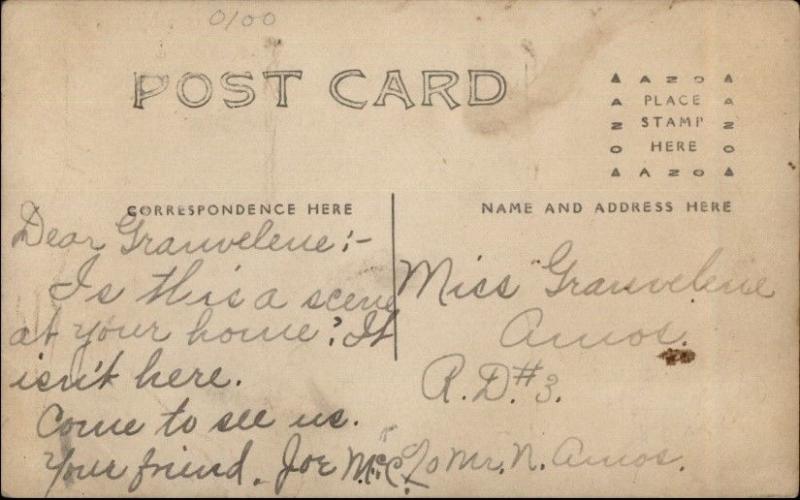 0100
POST CARD
▲ A Z O ▲
A PLACE A
Z STAMP Z
O HERE O
▲ A Z O ▲
CORRESPONDENCE HERE
Dear Granvelene:-
Is this a scene
at your home? It
isn't here.
Come to see us.
Your friend, Joe McC.
NAME AND ADDRESS HERE
Miss Granvelene
Amos.
R.D. #3.
℅ Mr. N. Amos.